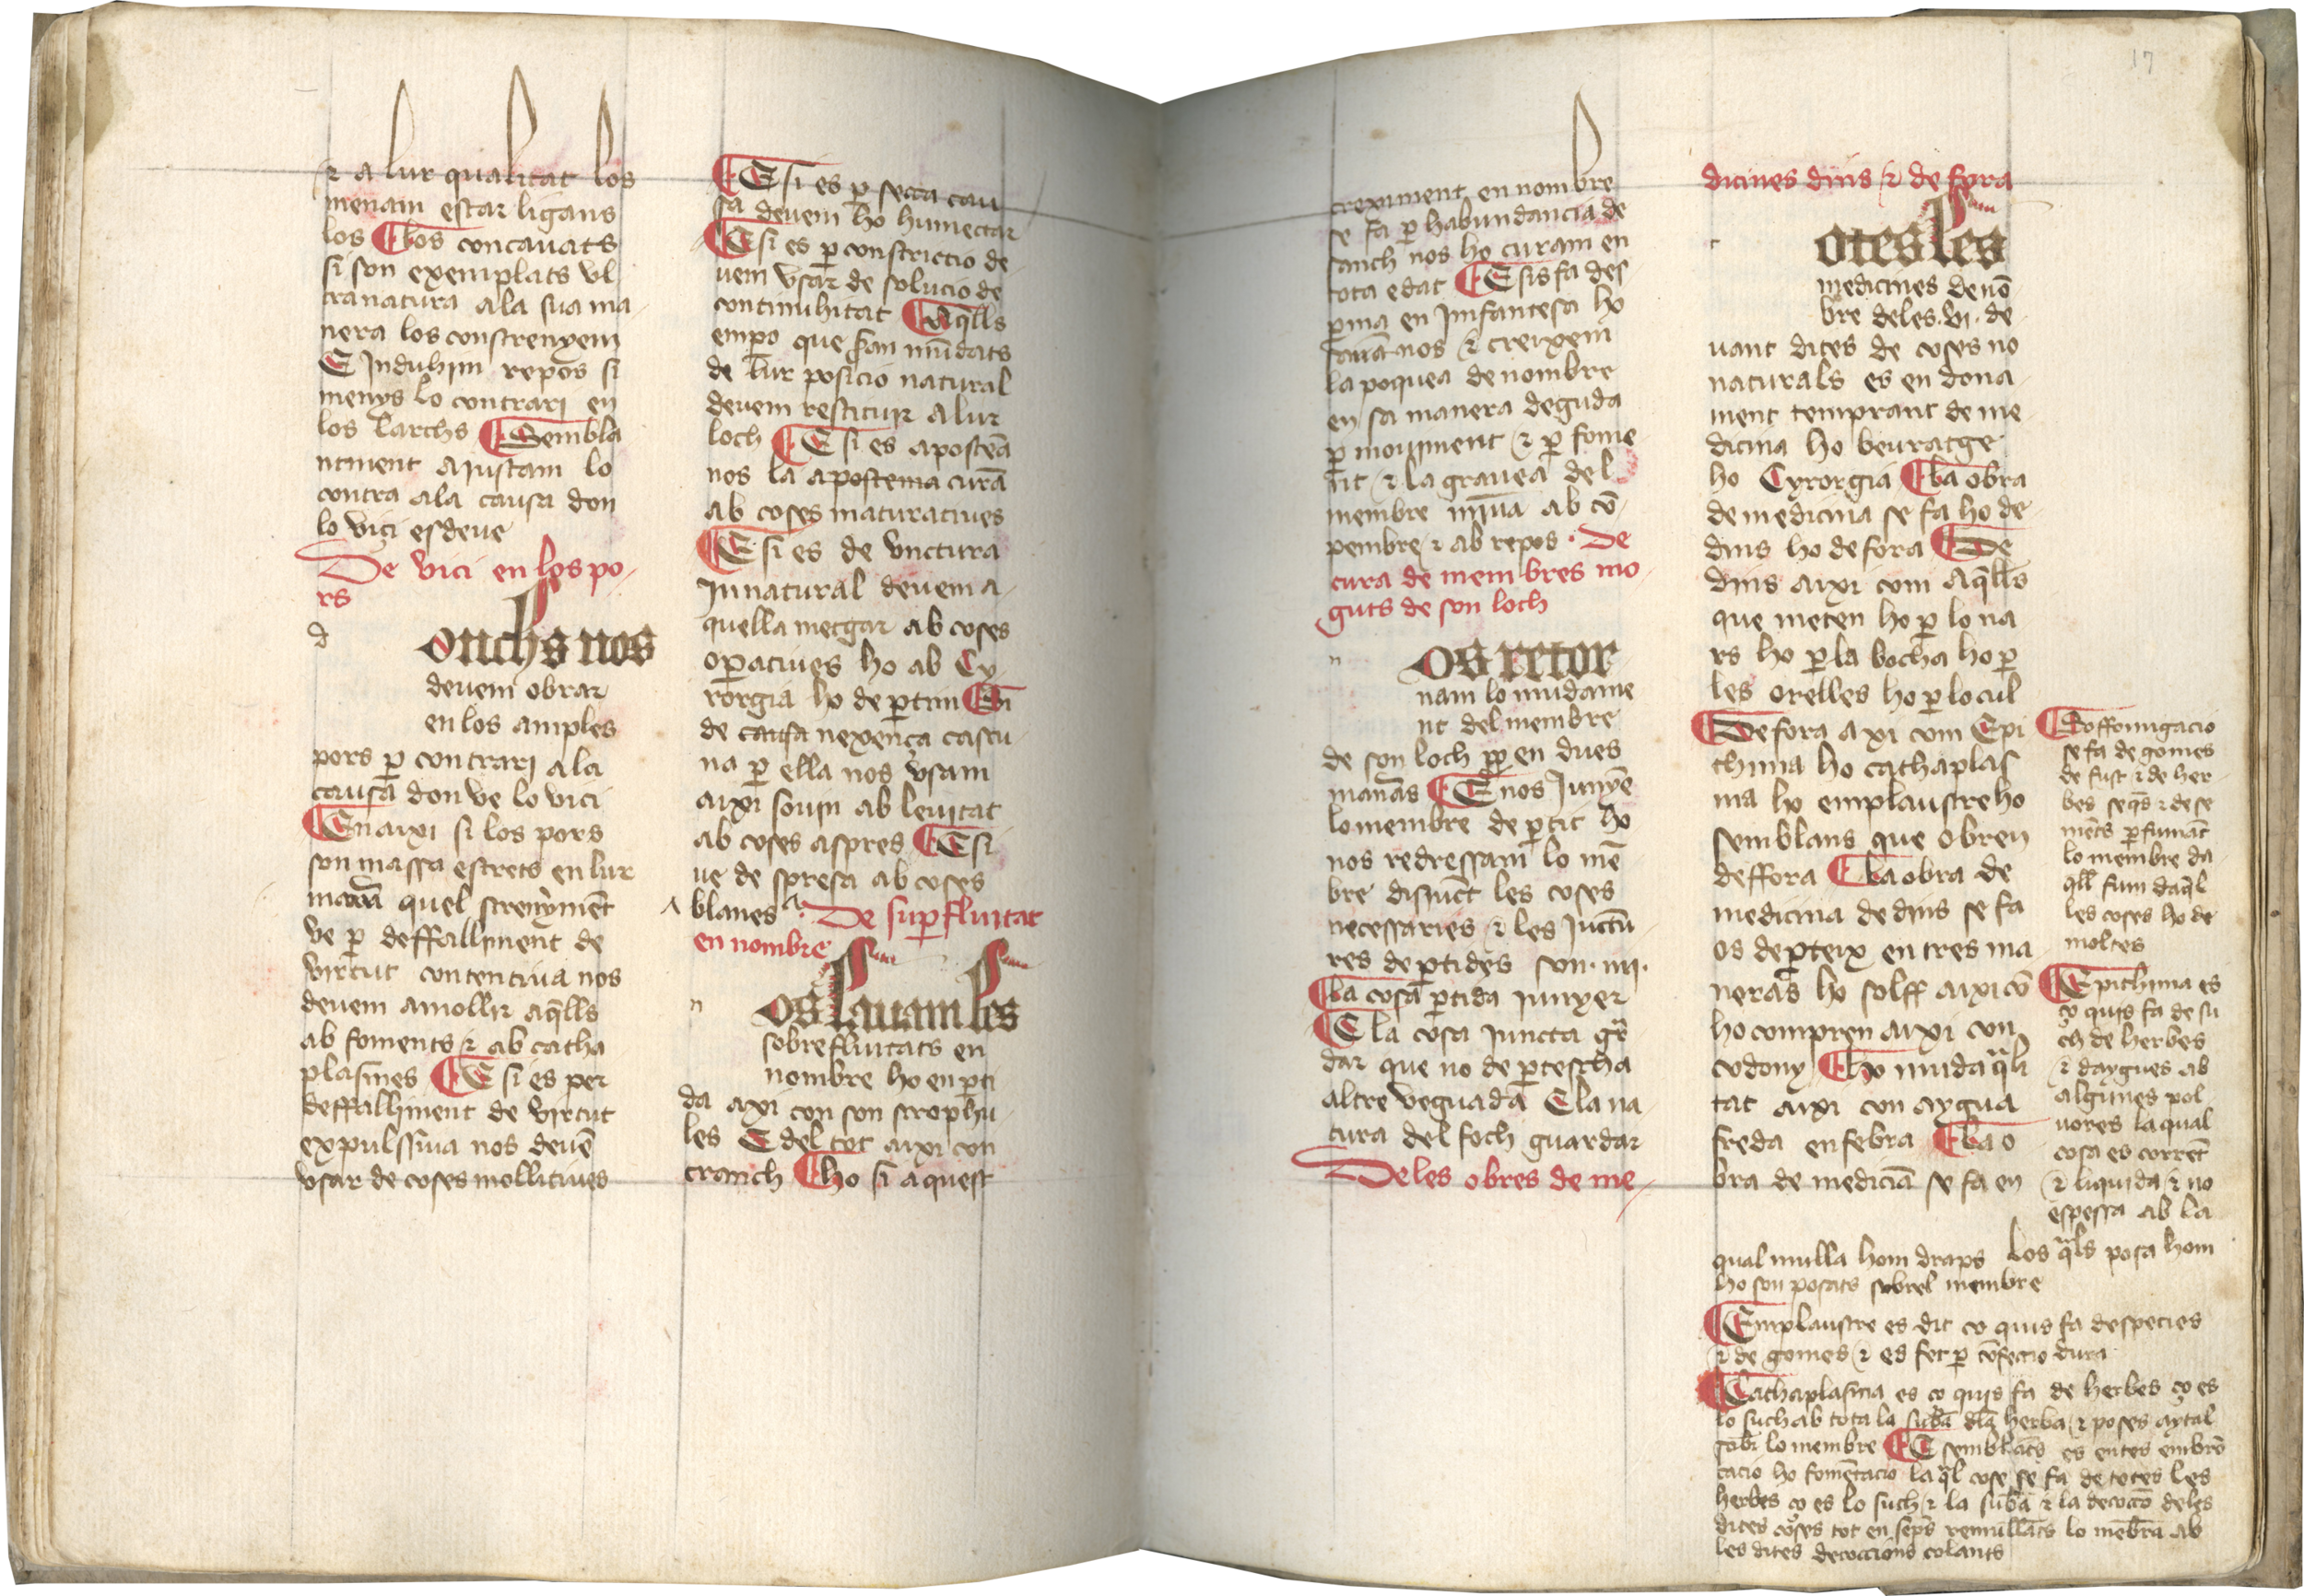 ⁊ a lur qualitat los
menam estar ligans
los ¶ Los concauats
si son exemplats vl
tra natura ala sua ma
nera los constrenyem
E Induhim repos si
menys lo contrarj en
los larchs ¶ Sembla
ntment ajustam lo
contra ala causa don
lo vici esdeue
De vici en los po
rs
d
onchs nos
deuem obrar
en los amples
pors ꝑ contrarj ala
causa don ve lo vici
¶ En axi si los pors
son massa estrets en lur
quel strenẏmēt
ve ꝑ deffalliment de
virtut contentiua nos
deuem amollir aq̄lls
ab foments ⁊ ab catha
plasmes ¶ E si es per
deffalliment de virtut
expulssiua nos deuē
vsar de coses mollitiues
¶ E si es ꝑ secca cau
sa deuem ho humectar
¶ E si es ꝑ constrictio de
uem vsar de solucio de
continuhitat ¶ Aq̄lls
empo que san mūdats
de lur posicio natural
deuem restituir a lur
loch ¶ E si es apostēa
nos la apostema curā
ab coses maturatiues
¶ E si es de vnctura
Innatural deuem a
quella metgar ab coses
oꝑatiues ho ab Cy
rorgia ho de ꝑtim ¶ Si
de causa nexença cascu
na ꝑ ella nos vsam
aixi souin ab leuitat
ab coses aspres ¶ E si
ue de spresa ab coses
blanes . De suꝑfluitat
en nombre
n
os lauam les
sobrefluitats en
nombre ho en ꝑti
da axi con son scrophu
les E del tot aixi con
cranch ¶ ho si aquest
creximent en nombre
se fa ꝑ habundancia de
sanch nos ho curam en
tota edat ¶ E sis fa des
ꝑma en Imfantesa ho
nos ⁊ creixem
la poquea de nombre
en sa manera deguda
ꝑ mouiment ⁊ ꝑ fome
nt ⁊ la grauea del
membre minua ab cō
pembre ⁊ ab repos . De
cura de membres mo
guts de son loch
n
os retor
nam lo mudame
nt del membre
de son loch en dues
manās ¶ E nos Junyē
lo membre de ꝑtit ho
nos redressam lo mē
bre disiūct les coses
necessaries ⁊ les Junctu
res de ꝑtides son . iiij .
¶ La cosa ꝑtida junyer
¶ E la cosa juncta gꝛ̄
dar que no de ꝑtescha
altre veguada E la na
tura del foch guardar
De les obres de me
dicines dins ⁊ de fora
t
otes les
medicines de nō
bre deles . vi . de
uant dites de coses no
naturals es en dona
ment temprant de me
dicina ho beuratge
ho Cyrorgia ¶ La obra
de medicina se fa ho de
dins ho de fora ¶ De
dins aixi com aq̄lls
que meten ho ꝑ lo na
rs ho ꝑ la bocha ho ꝑ
les orelles ho ꝑ lo cul
¶ De fora axi com Epi
thima ho cathaplas
ma ho emplaustre ho
semblans que obren
deffora ¶ La obra de
medicina de dins se fa
os de ꝑteix en tres ma
neras ho solff aixi cō
ho compren aixi con
codony ¶ ho muda q̄li
tat aixi con aygua
freda en febra ¶ La o
bra de medicīa se fa en
¶ Soffomigacio
se fa de gomes
de fust ⁊ de her
bes seq̄s ⁊ de se
mēts ꝑfumāt
lo membre da
q̄ll fum daq̄l
les coses ho de
moltes
¶ Epithima es
ço quis fa de su
ch de herbes
⁊ daygues ab
algunes pol
uores la qual
cosa es corrēt
⁊ liquida ⁊ no
espessa ab la
qual mulla hom draps los q̄ls posa hom
ho son posats sobrel membre
¶ Emplaustre es dit ço quis fa despecies
⁊ de gomes ⁊ es fet ꝑ cōfectio dura
¶ Cathaplasma es ço quis fa de herbes ço es
lo such ab tota la sub̄a dla herba ⁊ poses aytal
sobr̄ lo membre ¶ E semblāts es entes embro
cacio ho fomētacio la q̄l cose se fa de totes les
herbes ço es lo such ⁊ la sub̄a ⁊ la decoctō deles
dites coses tot en seps remullāts lo mēbra ab
les dites decoccions colants